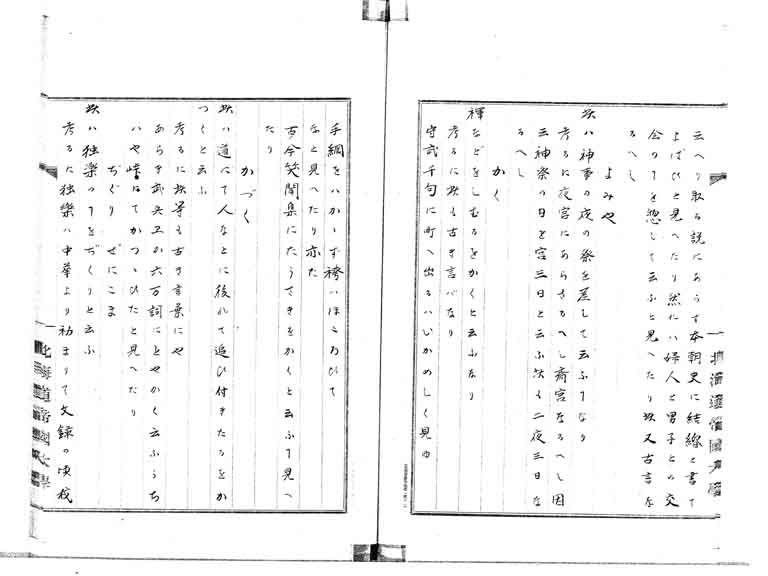 云へり取る説にあらす本朝史に結縁と書て
よばひと見へたり然に八婦人と男子との交
会のヿを惣して云ふと見へたり玆又古言な
るへし
よみや
玆ハ神事の夜の祭を差して云ふヿなり
考るに夜宮にあらさるへし斎宮なるへし因
三神祭の日を宮三日と云ふ玆も二夜三日な
るへし
かく
褌などをしむるをかくと云ふなり
考るに玆も古き言バなり
守武千句に町へ出るハいかめしく見ゆ
手綱をハかゝず袴ハほころひて
なと見へたり亦た
古今笑聞集にたうさきをかくと云ふヿ見へ
たり
かづく
玆ハ道にて人なとに後れて追ひ付きたるをか
つくと云ふ
考るに玆等も古き言葉にや
あらき武兵衛か六方詞にとやかく云ふうち
ハや峠にてかつゝひたと見へたり
ぢぐり ぜにこま
玆ハ独楽のヿをぢくりと云ふ
考るに独楽ハ中華より初まりて文録の頃我
北海道帝国大学
北海道帝国大学